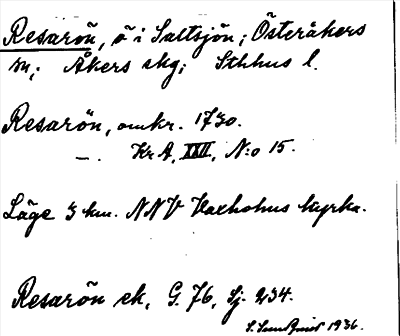 Resarön, ö i Saltsjön; Österåkers
sn; Åkers skg; Sthlms l.
Resarön, omkr. 1730.
—. Kr A, XXII, N:o 15.
Läge 3 km. NNV Vaxholms kyrka.
Resarön ek, G. 76, Sj. 234.
1936.